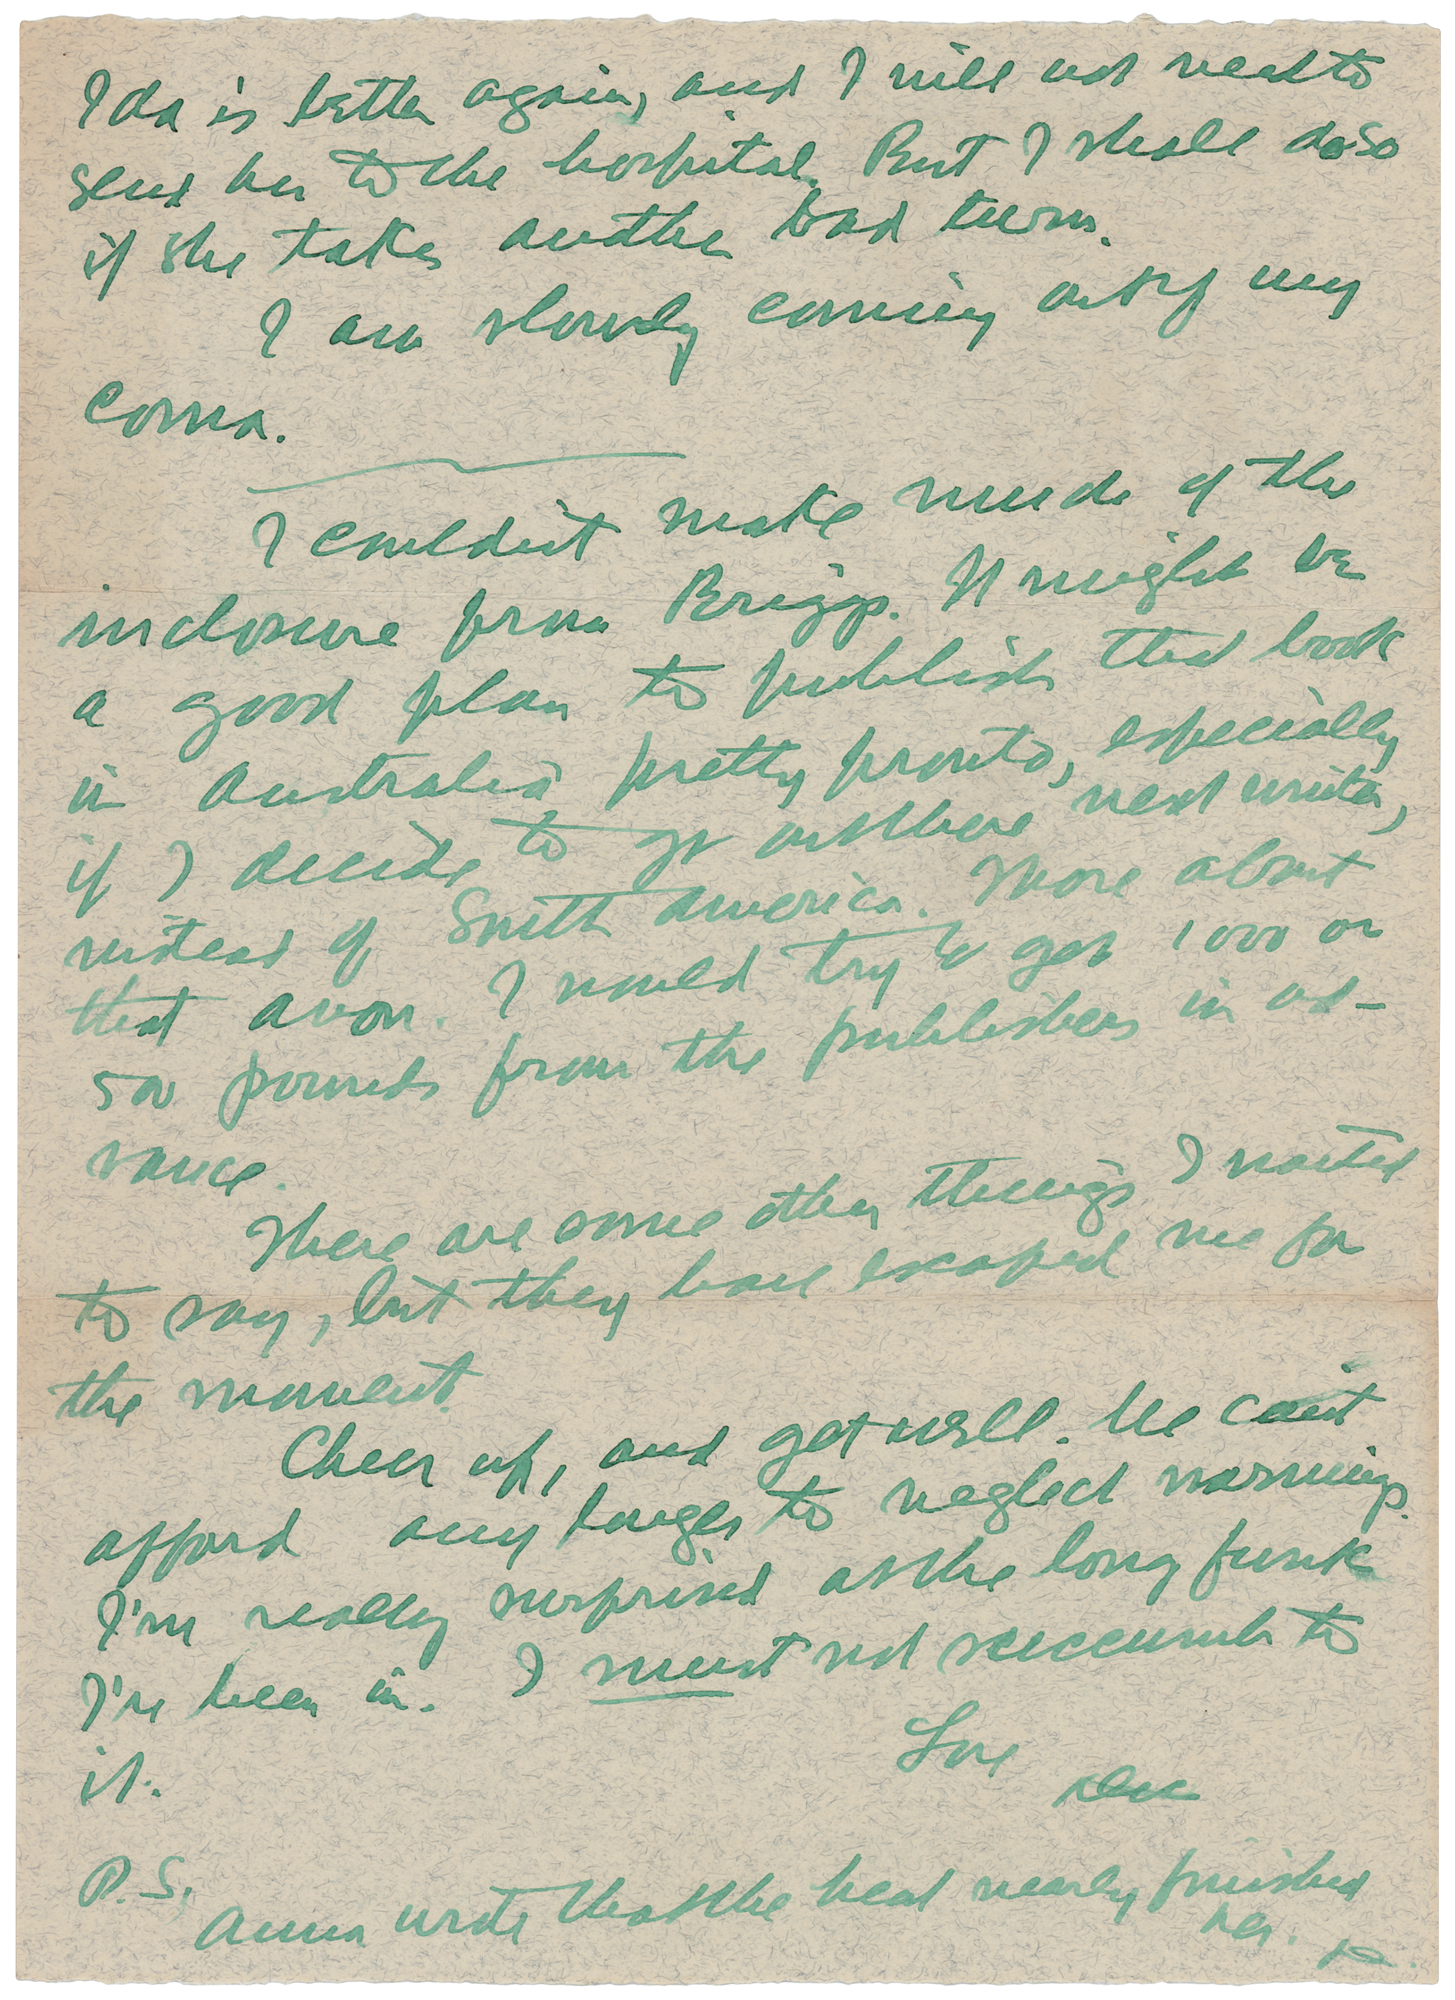 Ida is better again, and I will not need to
send her to the hospital. But I shall do so
if she takes another bad turn.
I am slowly coming out of my
coma.
I couldn't make much of the
inclosure from Briggs. It might be
a good plan to publish that book
in Australia pretty pronto, especially
if I decide to go out there next winter,
instead of South America. More about
that anon. I would try to get 1000 or
500 pounds from the publishers in ad-
vance.
There are some other things I wanted
to say, but they have escaped me for
the moment.
Cheer up, and get well. We can't
afford any longer to neglect warnings.
I'm really surprised at the long funk
I've been in. I must not succumb to
it.
Love
Doc
P.S.
Anna wrote that the heat nearly finished
her. D.